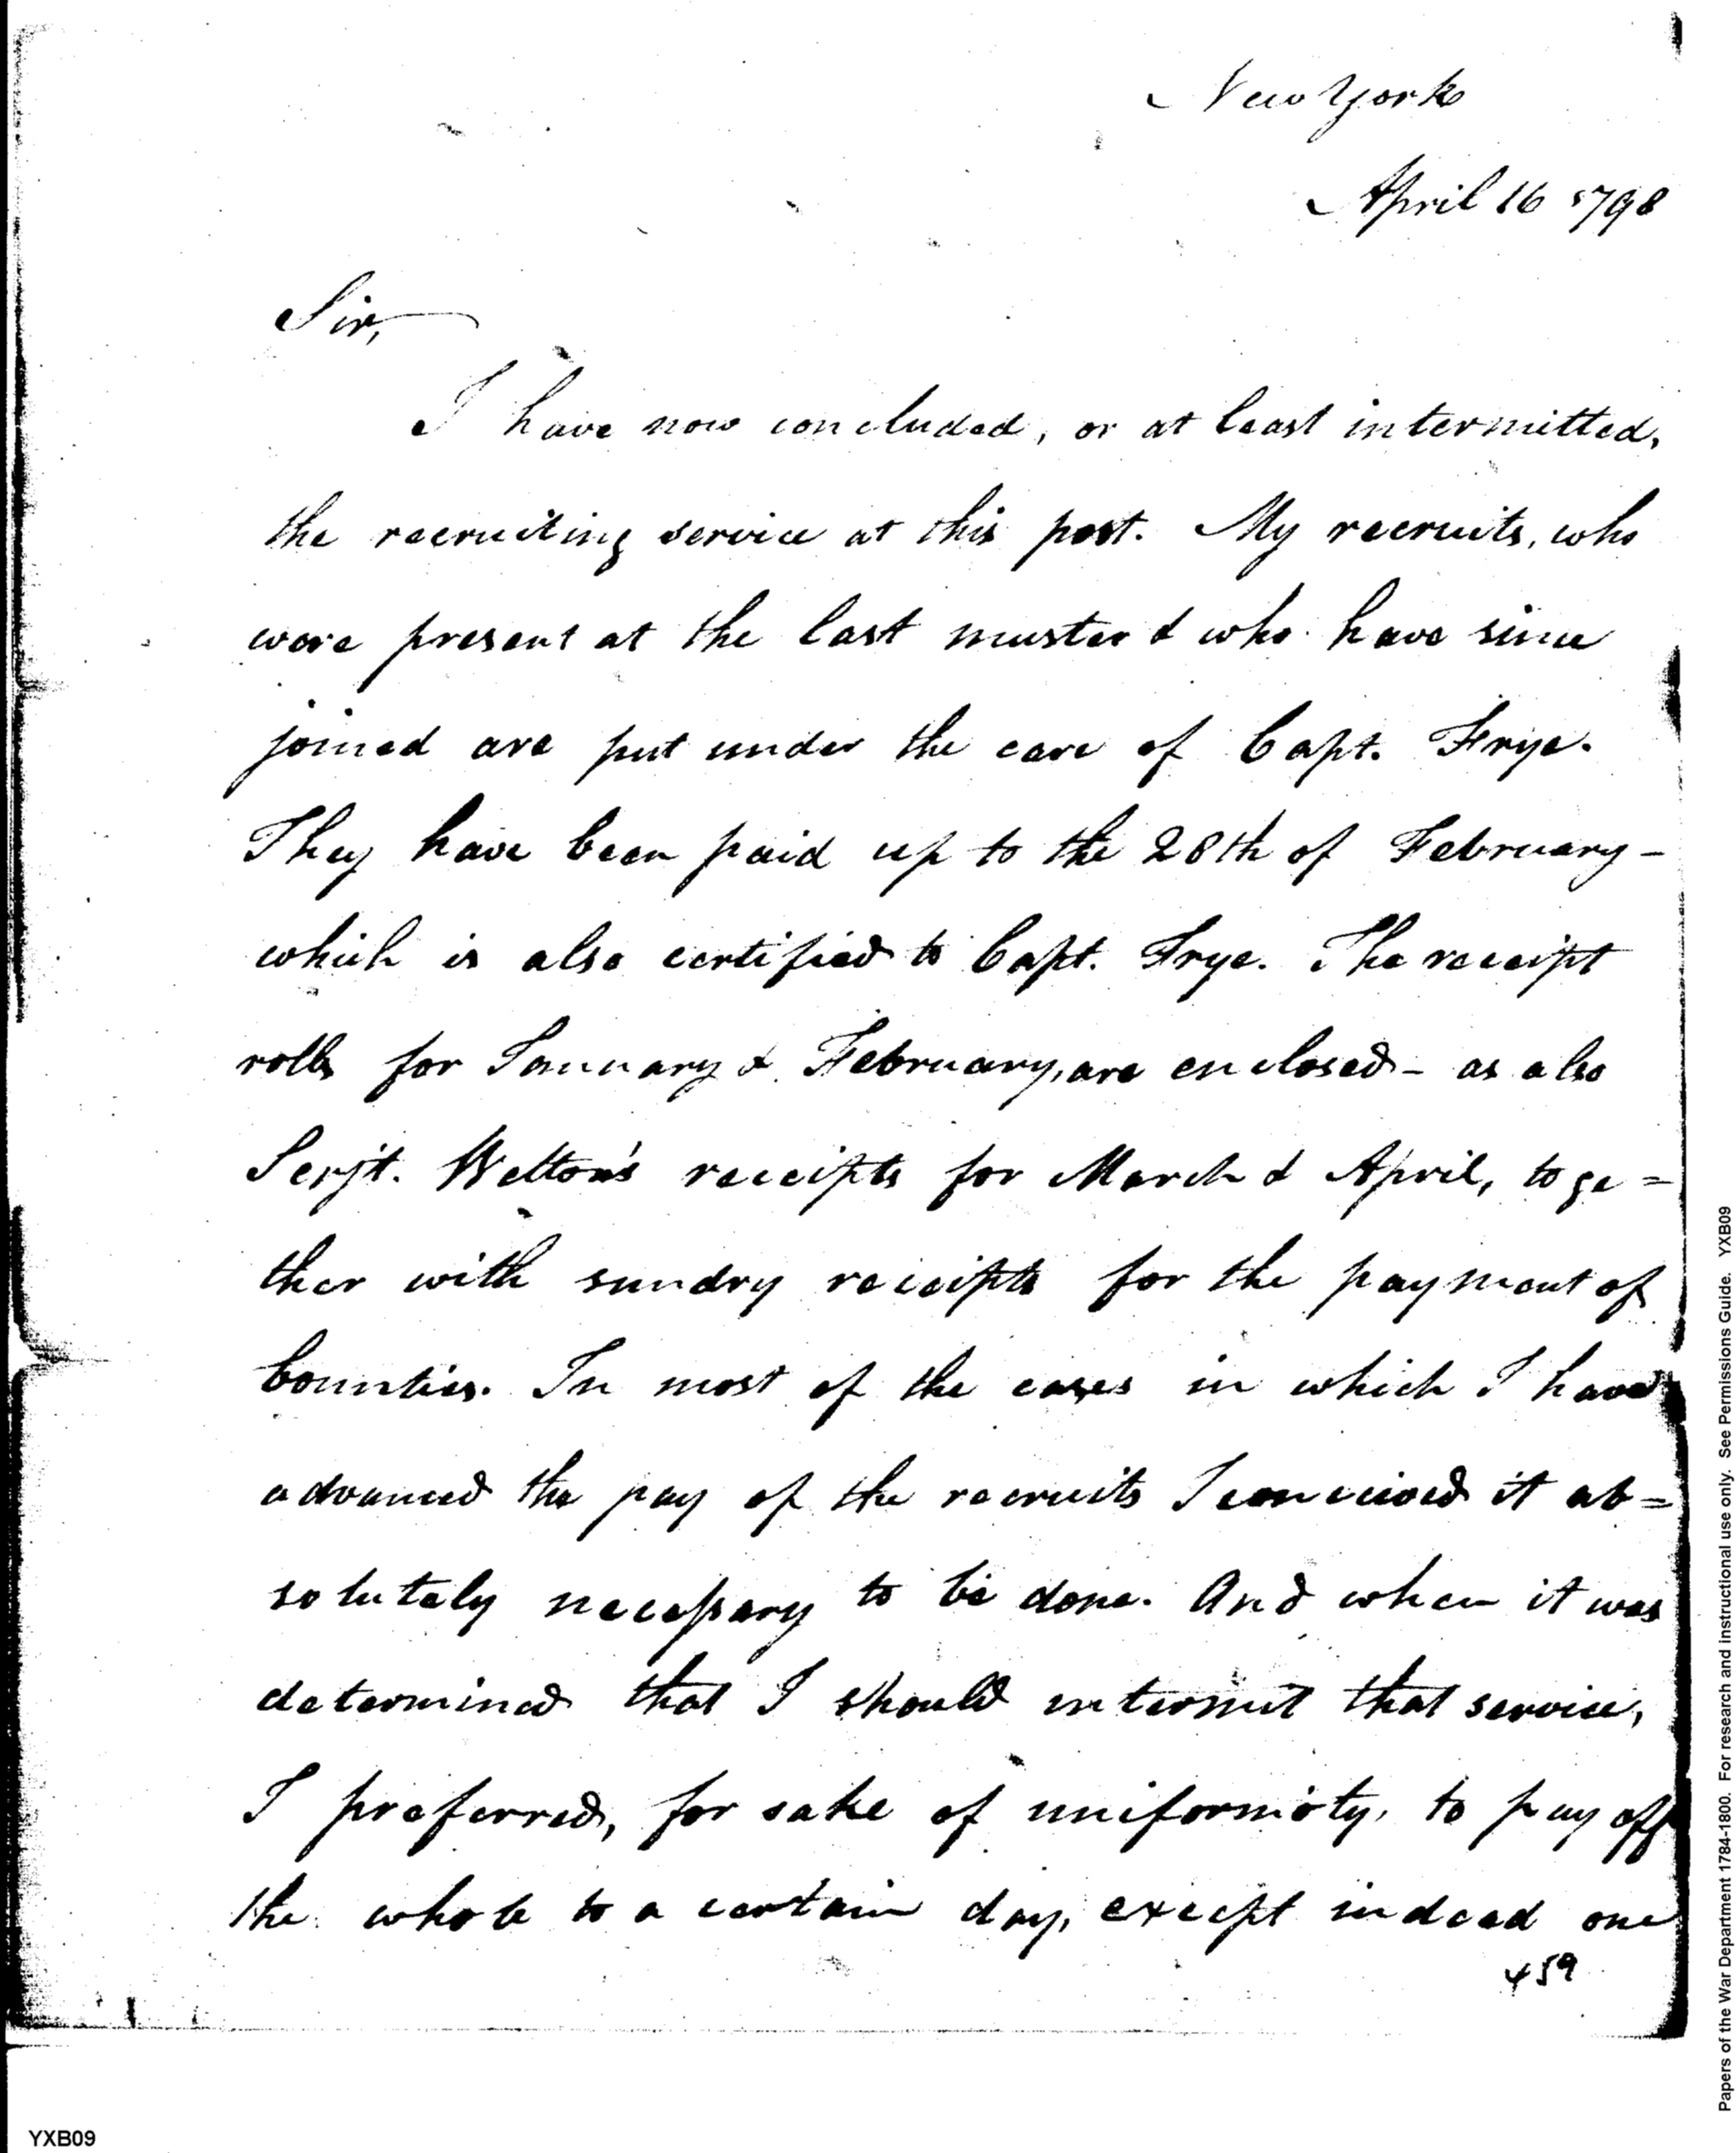 New York
April 16 1798
Sir,
I have now concluded, or at least intermitted,
the recruiting service at this post. My recruits, who
were present at the last muster & who have since
joined are put under the care of Capt. Frye.
They have been paid up to the 28th of February -
which is also certified to Capt. Frye. The receipt
rolls for January & February, are enclosed - as also
Serjt. Welton's receipts for March & April, toge=
ther with sundry receipts for the payment of
bounties. In most of the cases in which I have
advanced the pay of the recruits I conceived it ab=
solutely necessary to be done. And when it was
determined that I should intermit that service,
I preferred, for sake of uniformity, to pay off
the whole to a certain day, except indeed one
459
Papers of the War Department 1784-1800. For research and instructional use only. See Permissions Guide. YXB09
YXB09